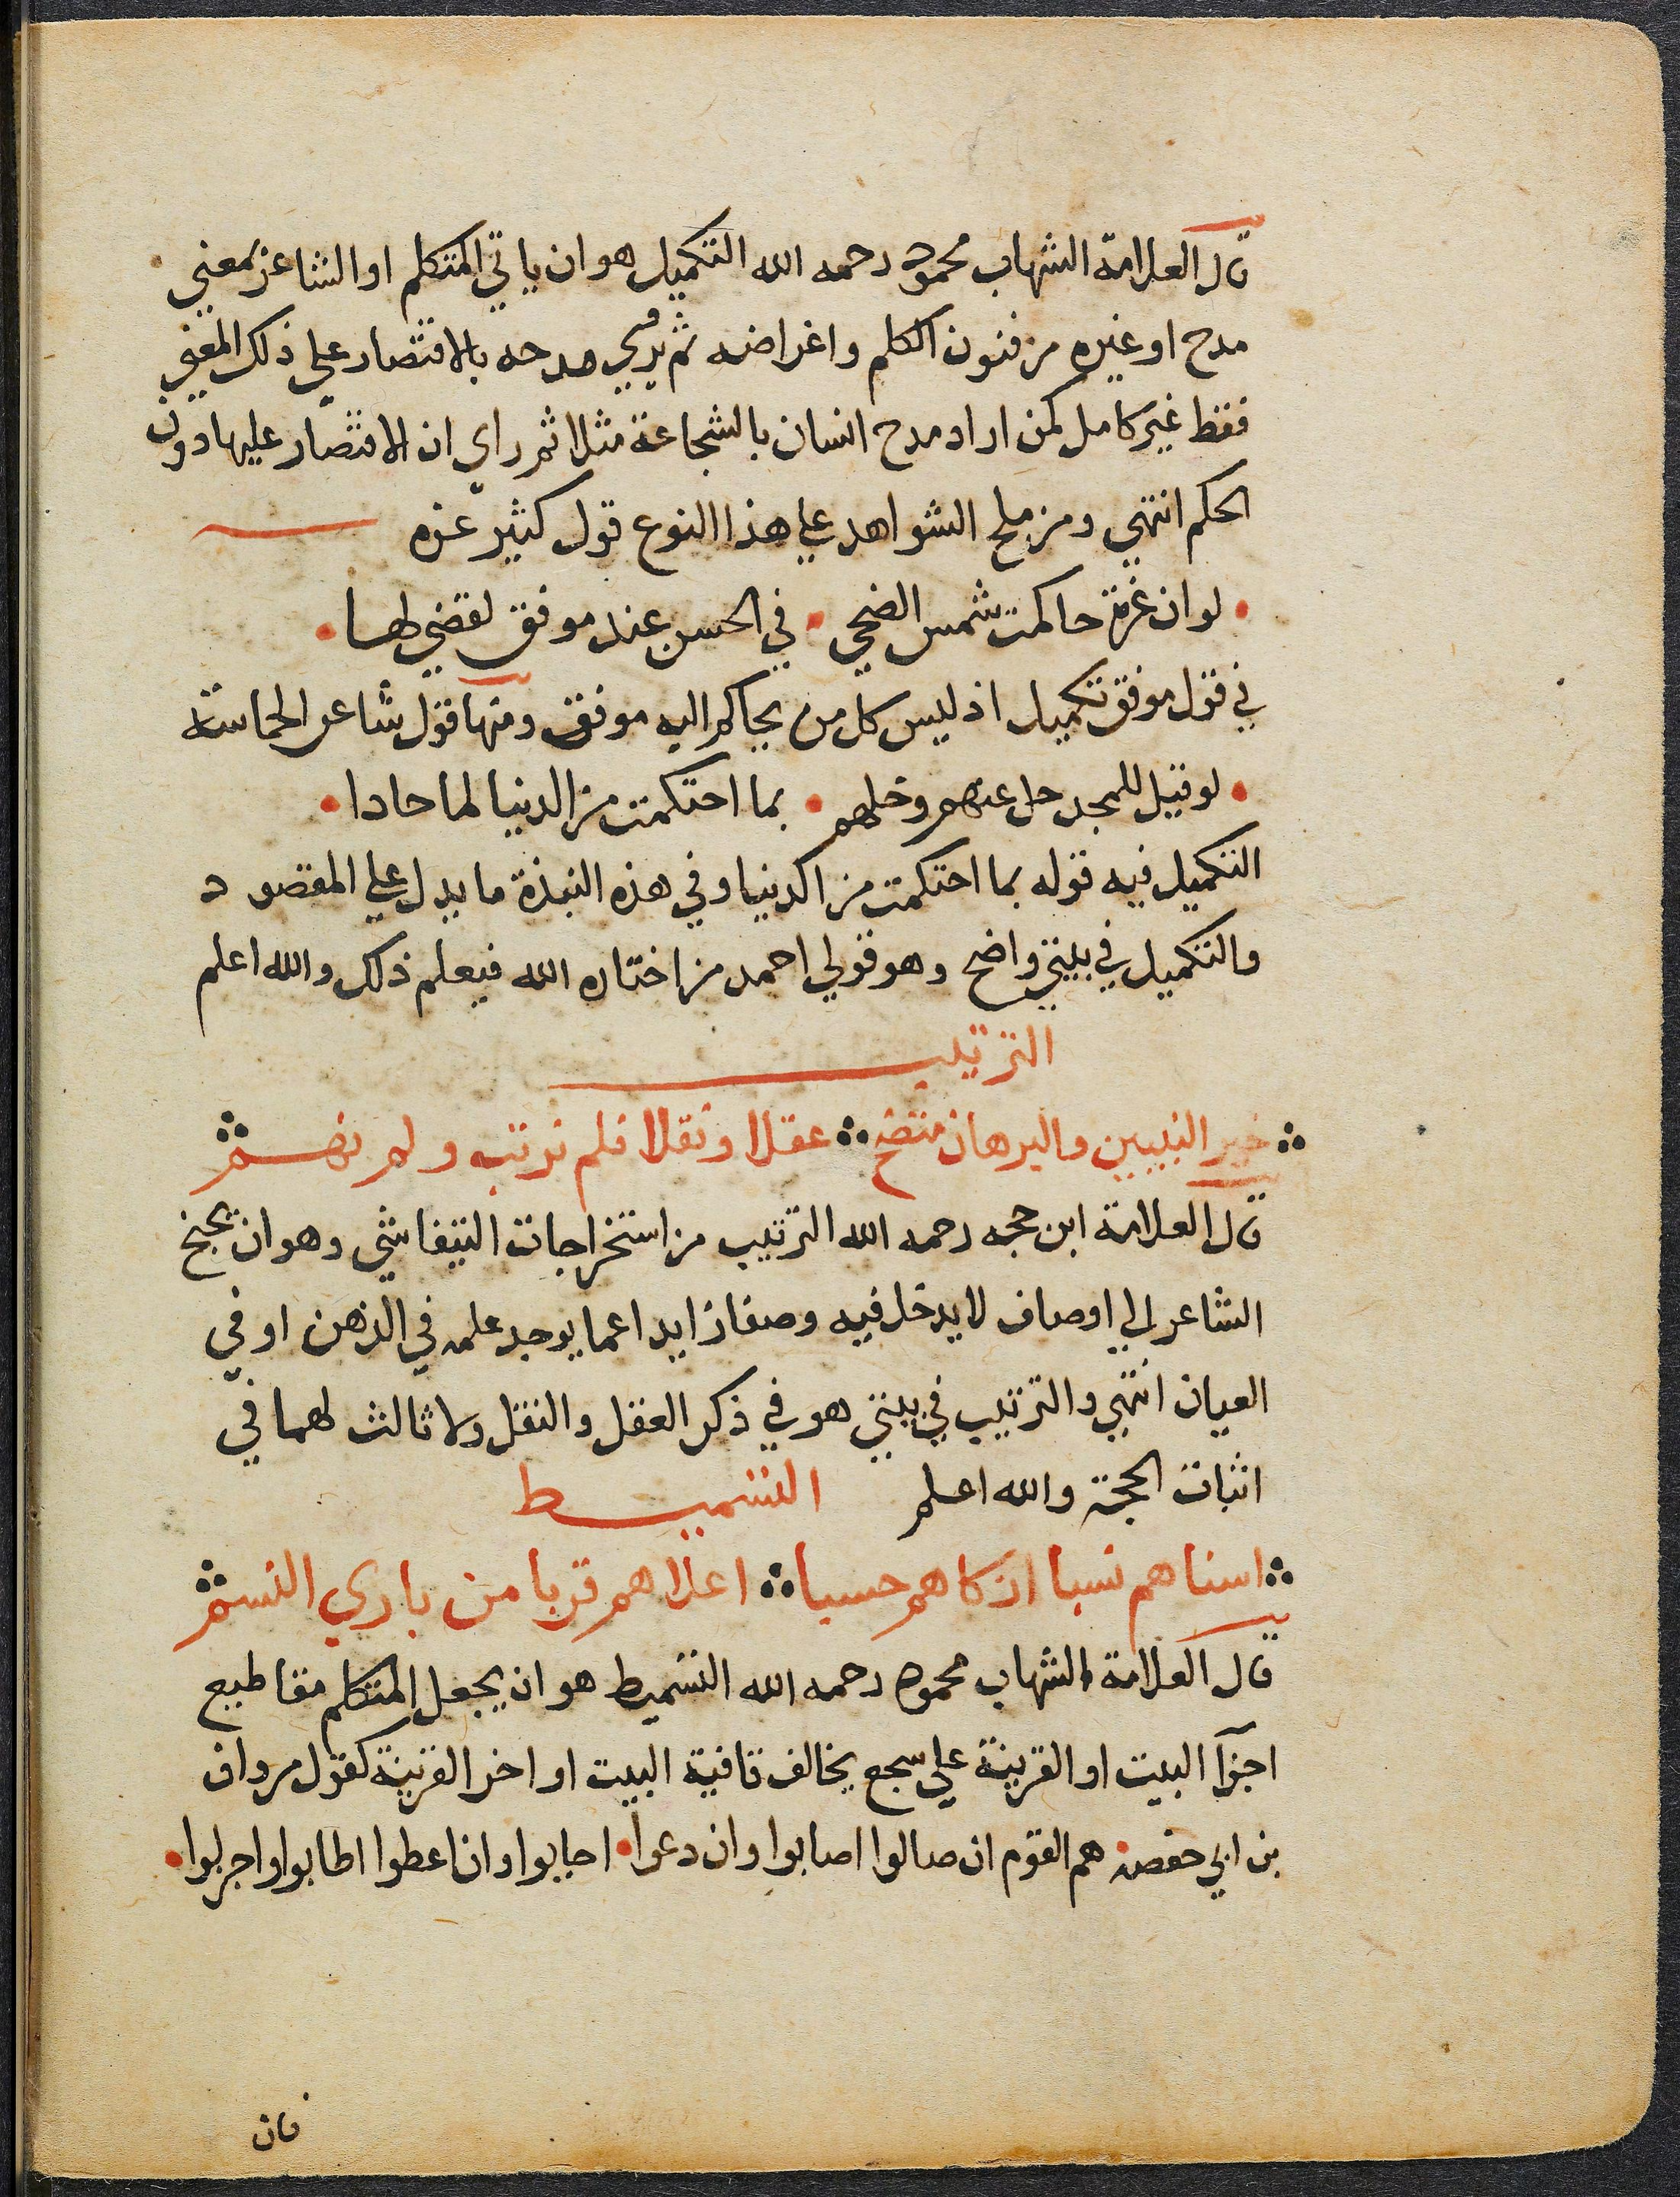 قال العلامة الشهاب محمود رحمه الله التكميل هو ان ياتي المتكلم او الشاعر بمعني
مدح او غيره من فنون الكلم واغراضه ثم يري مدحه بالاقتصار علي ذلك المعني
فقط غير كامل كمن اراد مدح انسان بالشجاعة مثلا ثم راي ان الاقتصار عليها دون
الحكم انتهي ومن ملح الشواهد علي هذا النوع قول كثير عزه
لو ان عزة حاكمت شمس الضحي • في الحسن عند موفق لقضي لها •
في قول موفق تكميل اذ ليس كل من يحاكم اليه موفق ومنها قول شاعر الحماسة
• لو قيل للمجد حل عنهم وخلهم • بما احتكمت من الدنيا لما حادا •
التكميل فيه قوله بما احتكمت من الدنيا وفي هذه النبذة ما يدل علي المقصود
والتكميل في بيتي واضح وهو قولي احمد من اختاره الله فيعلم ذلك والله اعلم
الترتيب
خير النبيين والبرهان متضح ∴ عقلا ونقلا فلم نرتب ولم نهم
قال العلامة ابن حجه رحمه الله الترتيب من استخراجات التيفاشي وهو ان يجنح
الشاعر الي اوصاف لا يدخل فيه وصفا زايدا عما يوجد علمه في الذهن او في
العيان انتهي والترتيب في بيتي هو في ذكر العقل والنقل ولا ثالث لهما في
اثبات الحجة والله اعلم التسميط
اسناهم نسبا ازكاهم حسبا ∴ اعلاهم قربا من باري النسم
قال العلامة الشهاب محمود رحمه الله التسميط هو ان يجعل المتكلم مقاطيع
اجزآ البيت او القرينة علي سجع يخالف قافية البيت او اخر القرينة كقول مروان
بن ابي حفصه • هم القوم ان صالوا اصابوا وان دعوا • اجابوا وان اعطوا اطابوا واجزلوا •
فان